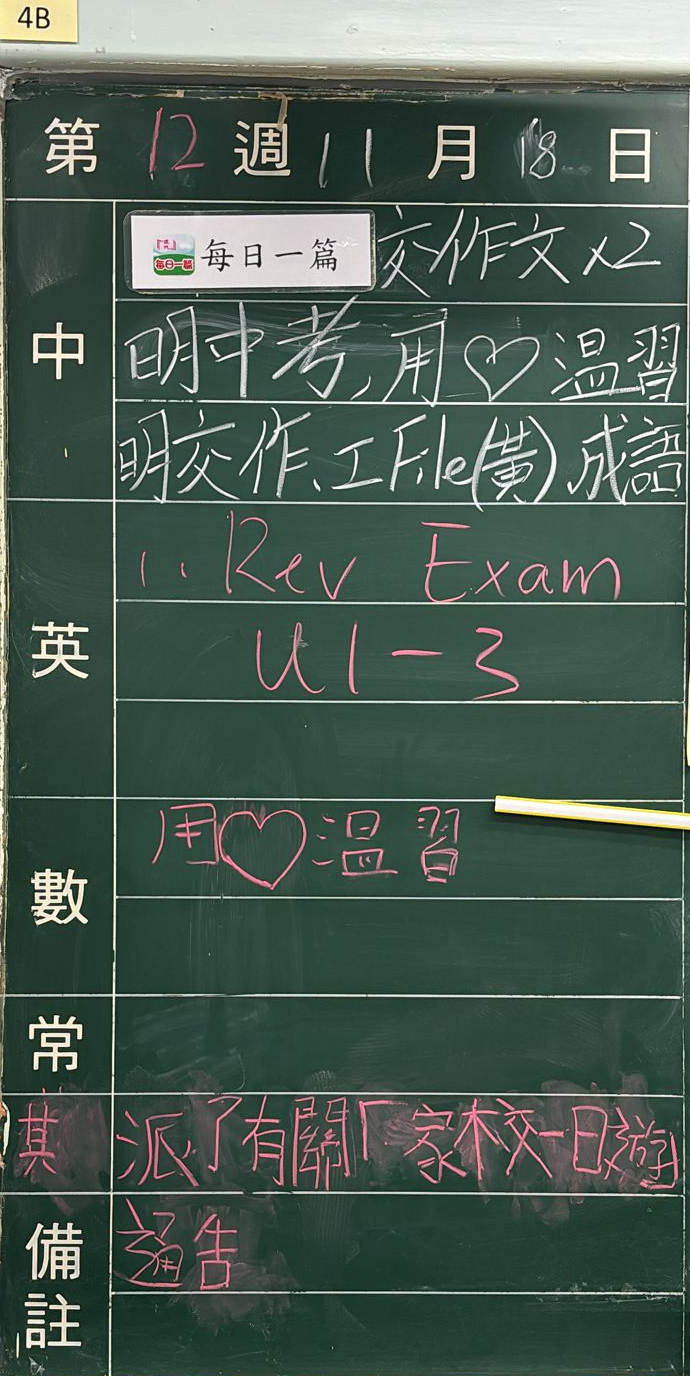 4B
第12週11月18日
中
每日一篇 交作文x2
明中考,用♡溫習
明交作、工File(黃)、成語
英
1.. Rev Exam
U1-3
數
用♡溫習
常
其 派了有關「家校一日遊
備註
通告